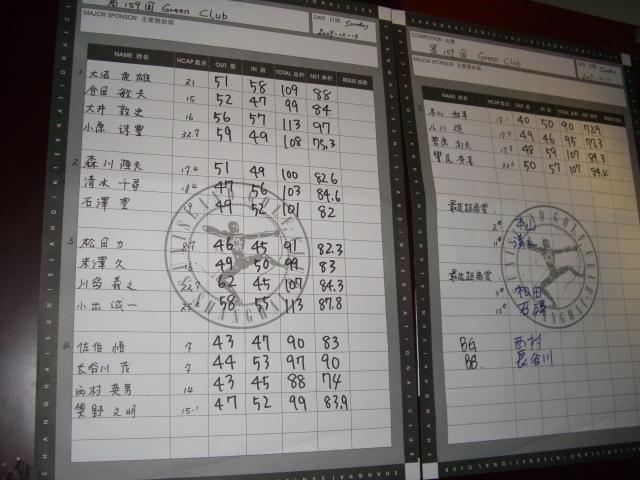 第159回 Green Club
MAJOR SPONSOR 主要赞助商
DATE 日期 Sunday
NAME 姓名 HCAP 差点 OUT 前 IN 后 TOTAL 总杆 NET 净杆 RESULT 成绩
1 大沼 英雄 21 51 58 109 88
合田 敏夫 15 52 47 99 84
大井 敦史 16 56 57 113 97
小原 32.7 59 49 108 75.3
2 森川 隆夫 17.4 51 49 100 82.6
清水 18.4 47 56 103 84.6
石澤 豊 19 49 52 101 82
3 松田 力 8.7 46 45 91 82.3
米澤 久 16 49 50 99 83
22.7 62 45 107 84.3
小出 誠一 25.2 58 55 113 87.8
4 佐伯 悟 7 43 47 90 83
長谷川 茂 7 44 53 97 90
西村 英男 14 43 45 88 74
奥野 文明 15.1 47 52 99 83.9
SHANGHAI SUN ISLAND INTERNATIONAL CLUB
COMPETITION 比赛
第159回 Green Club
MAJOR SPONSOR 主要赞助商
DATE 日期 Sunday
NAME 姓名 HCAP 差点 OUT 前 IN 后 TOTAL 总杆 NET 净杆 RESULT 成绩
40 50 90 72.9
小川 49 46 95 77.3
48 59 107 84.3
50 57 107 84.4
最近距離賞
本山
清水
最近距離賞
松田
石澤
BG 西村
BB. 長谷川